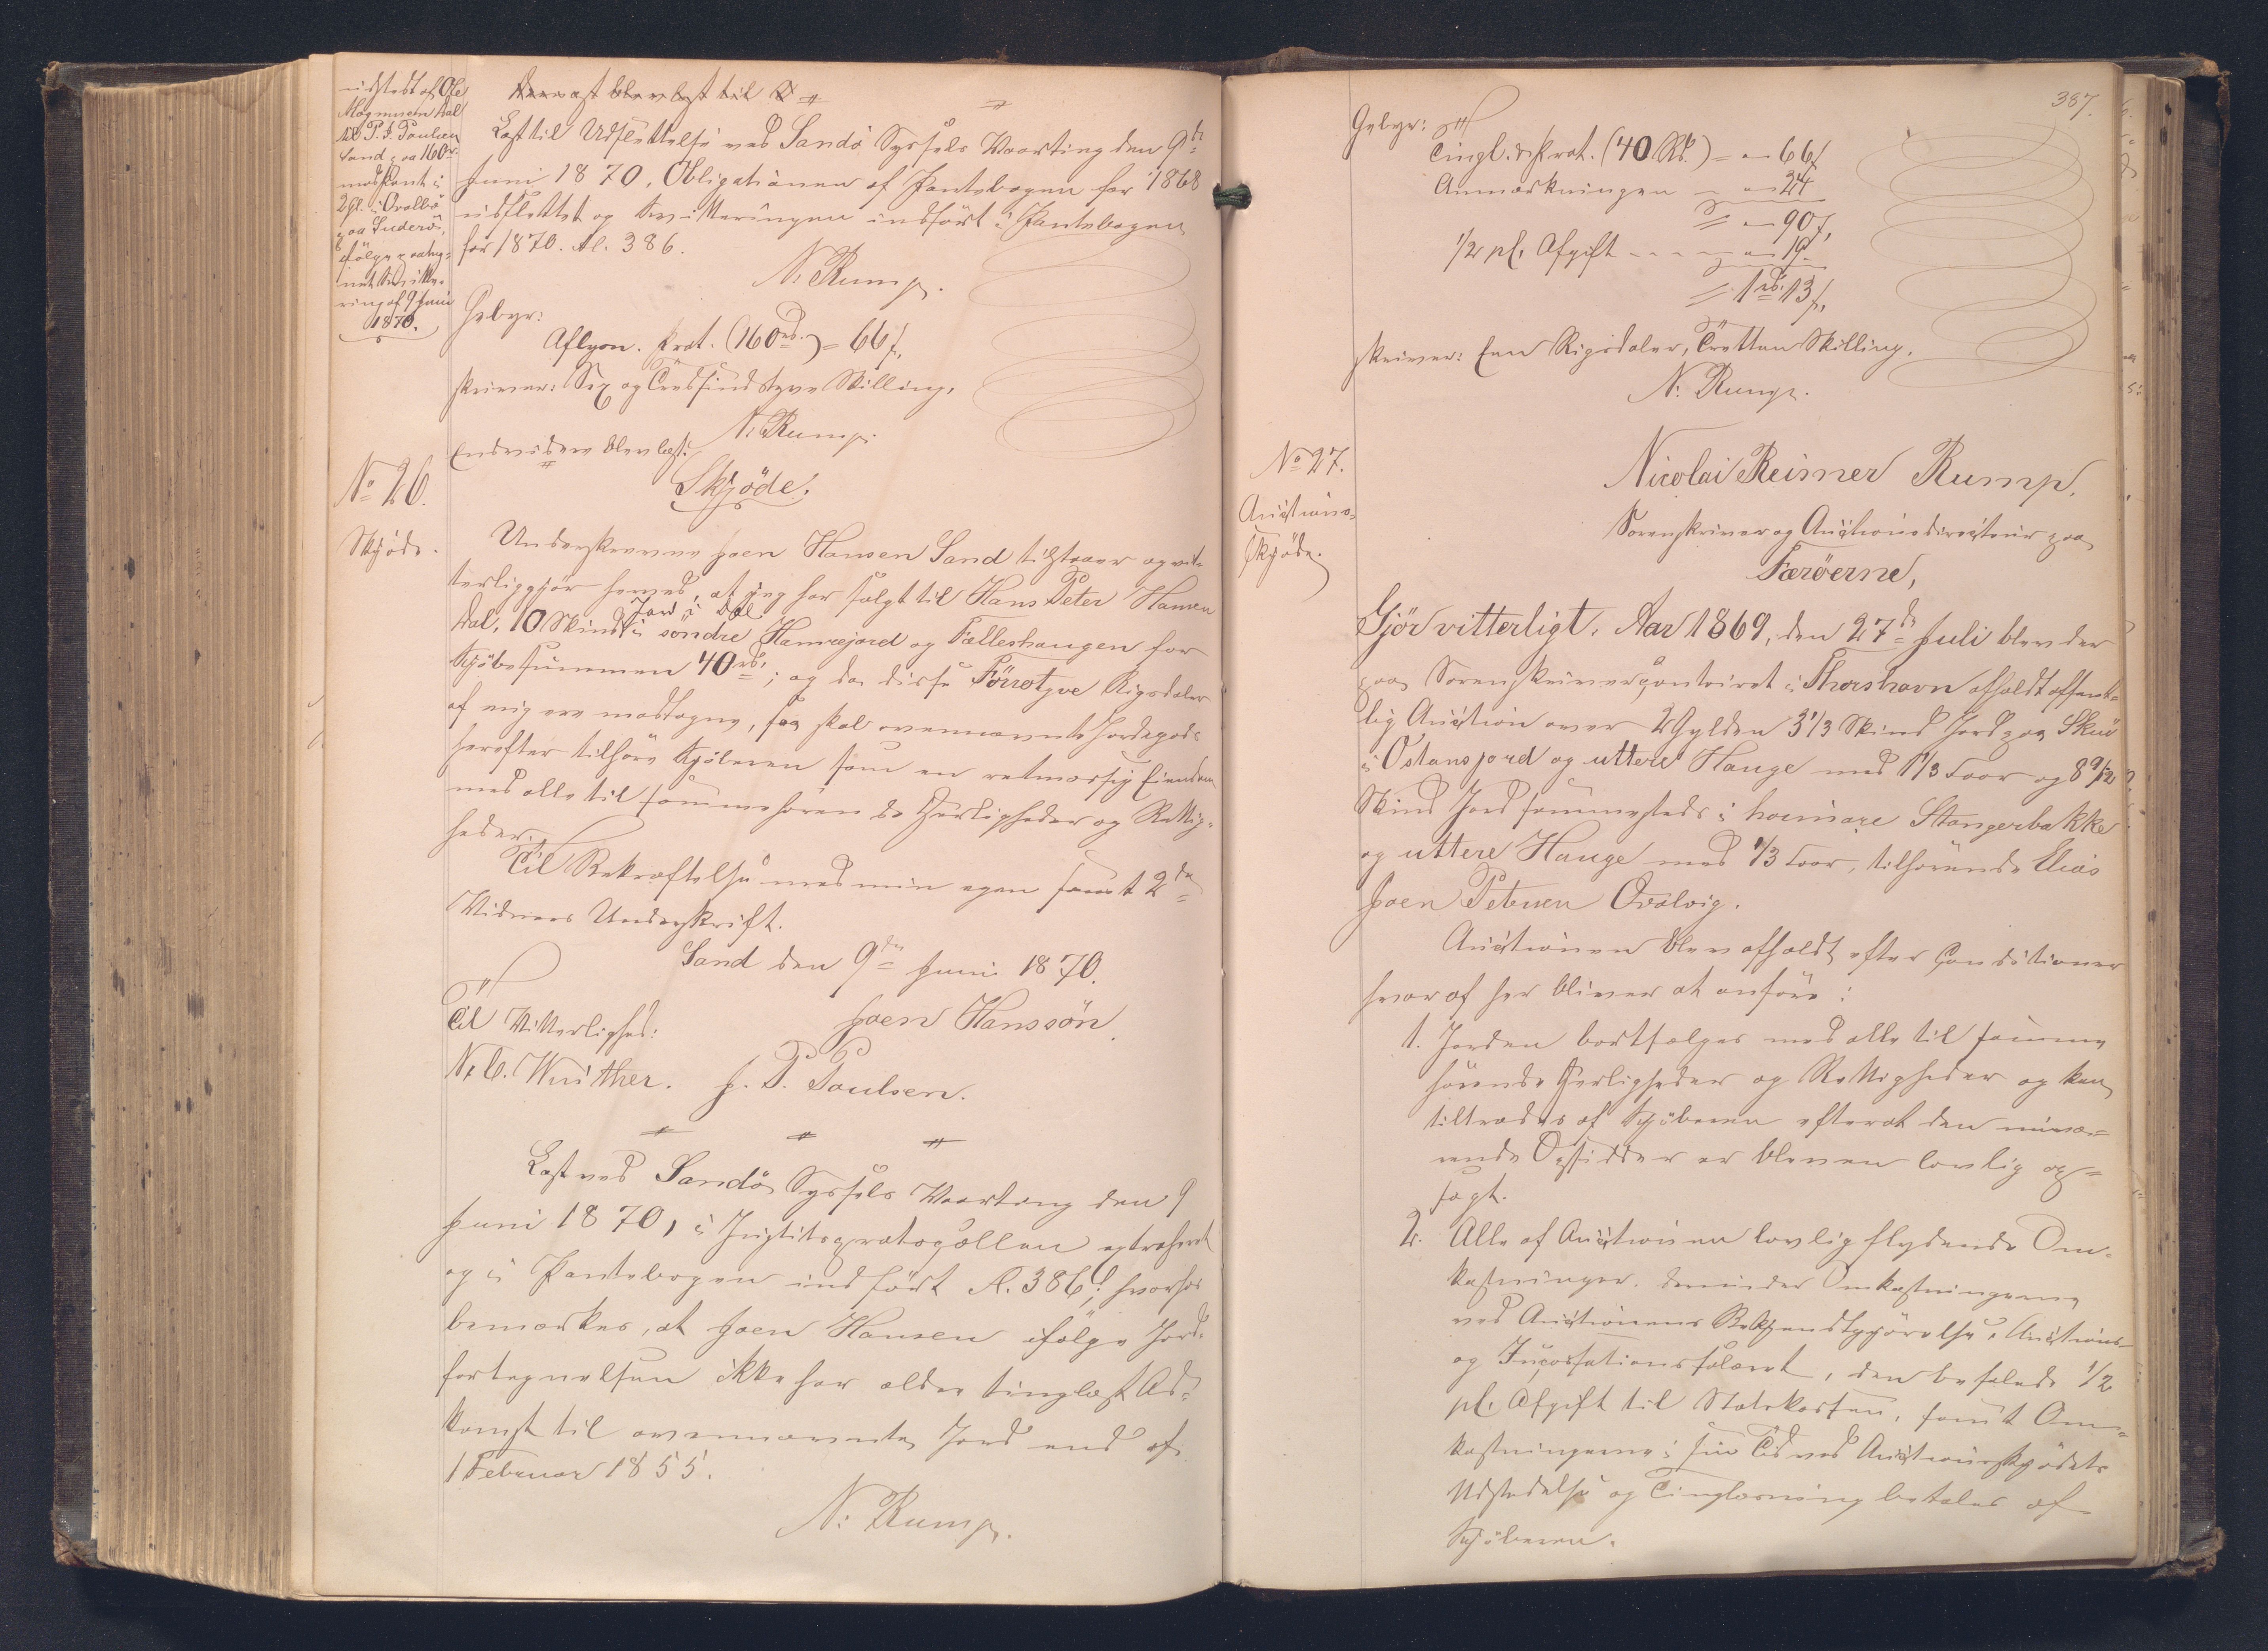 udstedt af Ole
Magnussen Dal
til P. J. Poulsen
Sand paa 160rd
mod Pant i
2 Gl. i Qvalbö
paa Suderö,
ifölge paateg-
net Kvitte-
ring af 9 Juni
1870.
Dernæst blev læst til
Læst til Udslettelse ved Sandö Syssels Vaarting den 9de
Juni 1870, Obligationen af Pantebogen for 1868
udslettet og Kvitteringen indfört i Pantebogen
for 1870. fol. 386.
N. Rump.
Gebyr:
Aflæsn. Prot. (160rd.) = 66 s.
skriver: Sex og Tredsindstyve Skilling.
N. Rump.
Endvidere blev læst:
No 26.
Skjöde.
Skjöde.
Underskrevne Joen Hansen Sand tilstaaer og vit-
terliggjör herved, at jeg har solgt til Hans Peter Hansen
Dal, 10 Skind Jord i Dal i söndre Hamrejord og Fælleshaugen for
Kjöbesummen 40rd.; og da disse Förrotyve Rigsdaler
af mig ere modtagne, saa skal ovennævnte Jordegods
herefter tilhöre Kjöberen som en retmæssig Eiendom
med alle til sammehörende Herligheder og Rettig-
heder.
Til Bekræftelse med min egen samt 2de
Vidners Underskrift.
Sand den 9de Juni 1870.
Joen Hanssön.
Til Vitterlighed:
N. C. Winther. J. P. Poulsen.
Læst ved Sandö Syssels Vaarting den 9
Juni 1870, i Justitsprotocollen extraheret
og i Pantebogen indfört fol. 386; hvorhos
bemærkes, at Joen Hansen ifölge Jord-
fortegnelsen ikke har ældre tinglæst Ad-
komst til ovennævnte Jord end af
1 Februar 1855.
N. Rump.
387.
Gebyr:
Tingl. & Prot. (40 Rd.) = " 66 s
Anmærkningen - " 24
= " 90 s.
1/2 pC. Afgift - - - " 19.
= 1rd. 13 s.
skriver: Een Rigsdaler, Tretten Skilling.
N. Rump.
No 27.
Auctions-
skjöde.
Nicolai Reismer Rump,
Sorenskriver og Auctionsdirecteur paa
Færöerne,
Gjör vitterligt: Aar 1869, den 27de Juli blev der
paa Sorenskrivercontoiret i Thorshavn afholdt offent-
lig Auction over 2 Gylden 3 1/3 Skind Jord paa Skuö
i Östansjord og uttere Hauge med 1 1/3 Foer og 8 9/12
Skind Jord sammesteds i hoimare Stangerbakke
og uttere Hauge med 1/3 Foer, tilhörende Elias
Joen Petersen Qvalvig.
Auctionen blev afholdt efter Conditioner
hvoraf her bliver at anföre:
1. Jorden bortsælges med alle til samme
hörende Herligheder og Rettigheder og kan
tiltrædes af Kjöberen efterat den nuvæ-
rende Opsidder er bleven lovlig op-
sagt.
2. Alle af Auctionen lovlig flydende Om-
kostninger, derunder Omkostningerne
ved Auctionens Bekjendtgjörelse, Auctions-
og Incassationssalæret, den befalede 1/2
pC. Afgift til Statskassen, samt Om-
kostningerne i sin Tid ved Auctionsskjödets
Udstedelse og Tinglæsning betales af
Kjöberen.